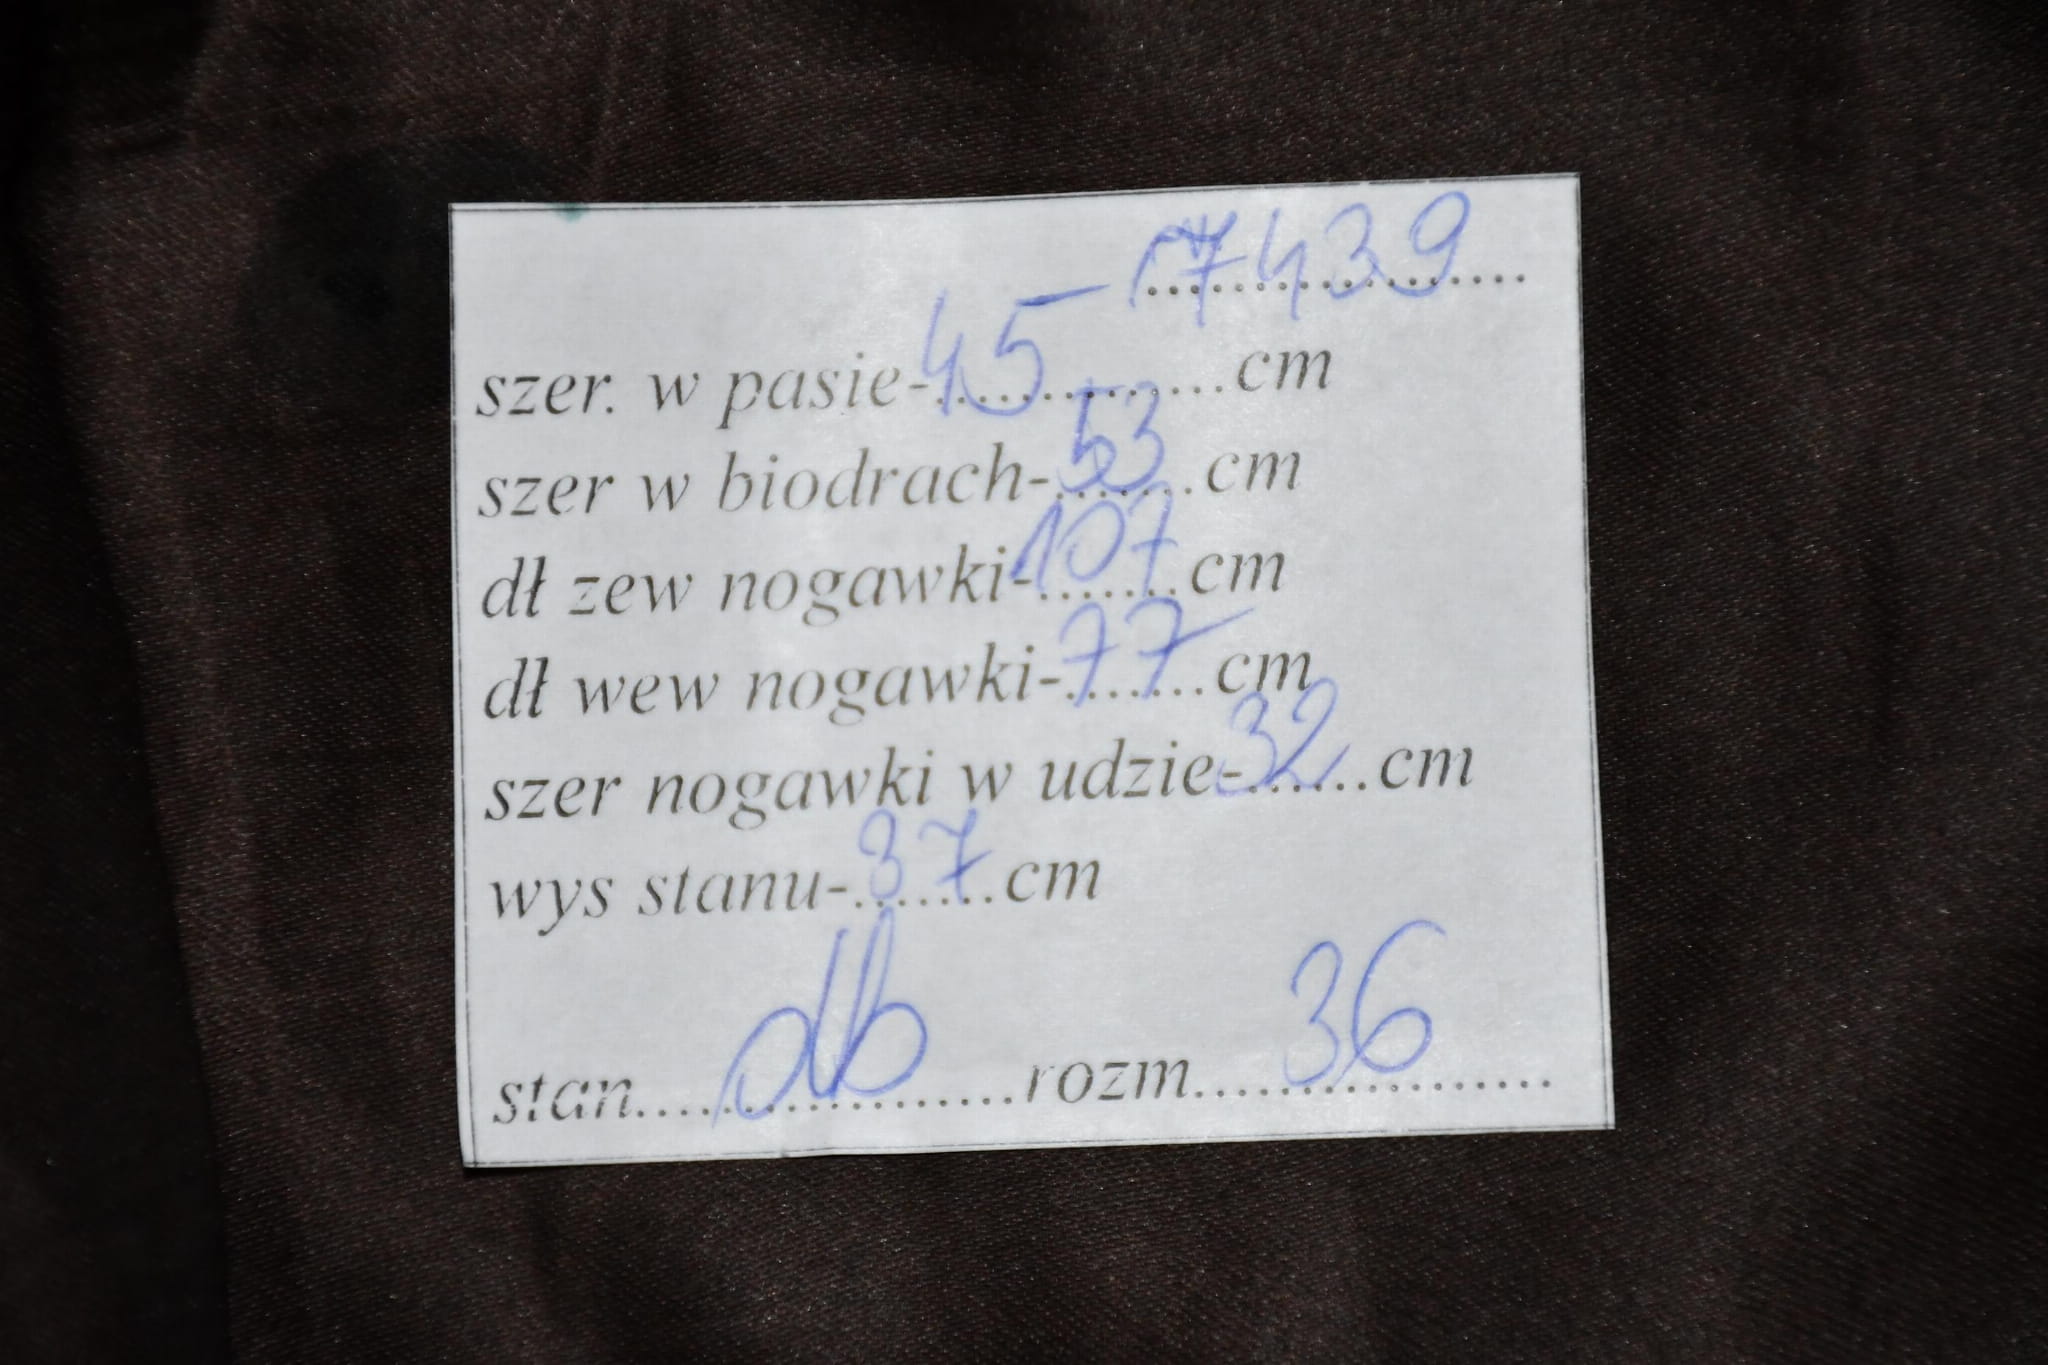 r7439
szer. w pasie-45..............cm
szer w biodrach-53.......cm
dł zew nogawki-107.......cm
dł wew nogawki-77.......cm
szer nogawki w udzie-32......cm
wys stanu-37.......cm
stan....db..............rozm....36..............